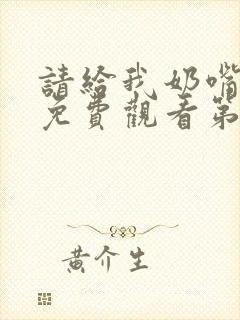 請給我奶嘴
免費觀看第
黃介生